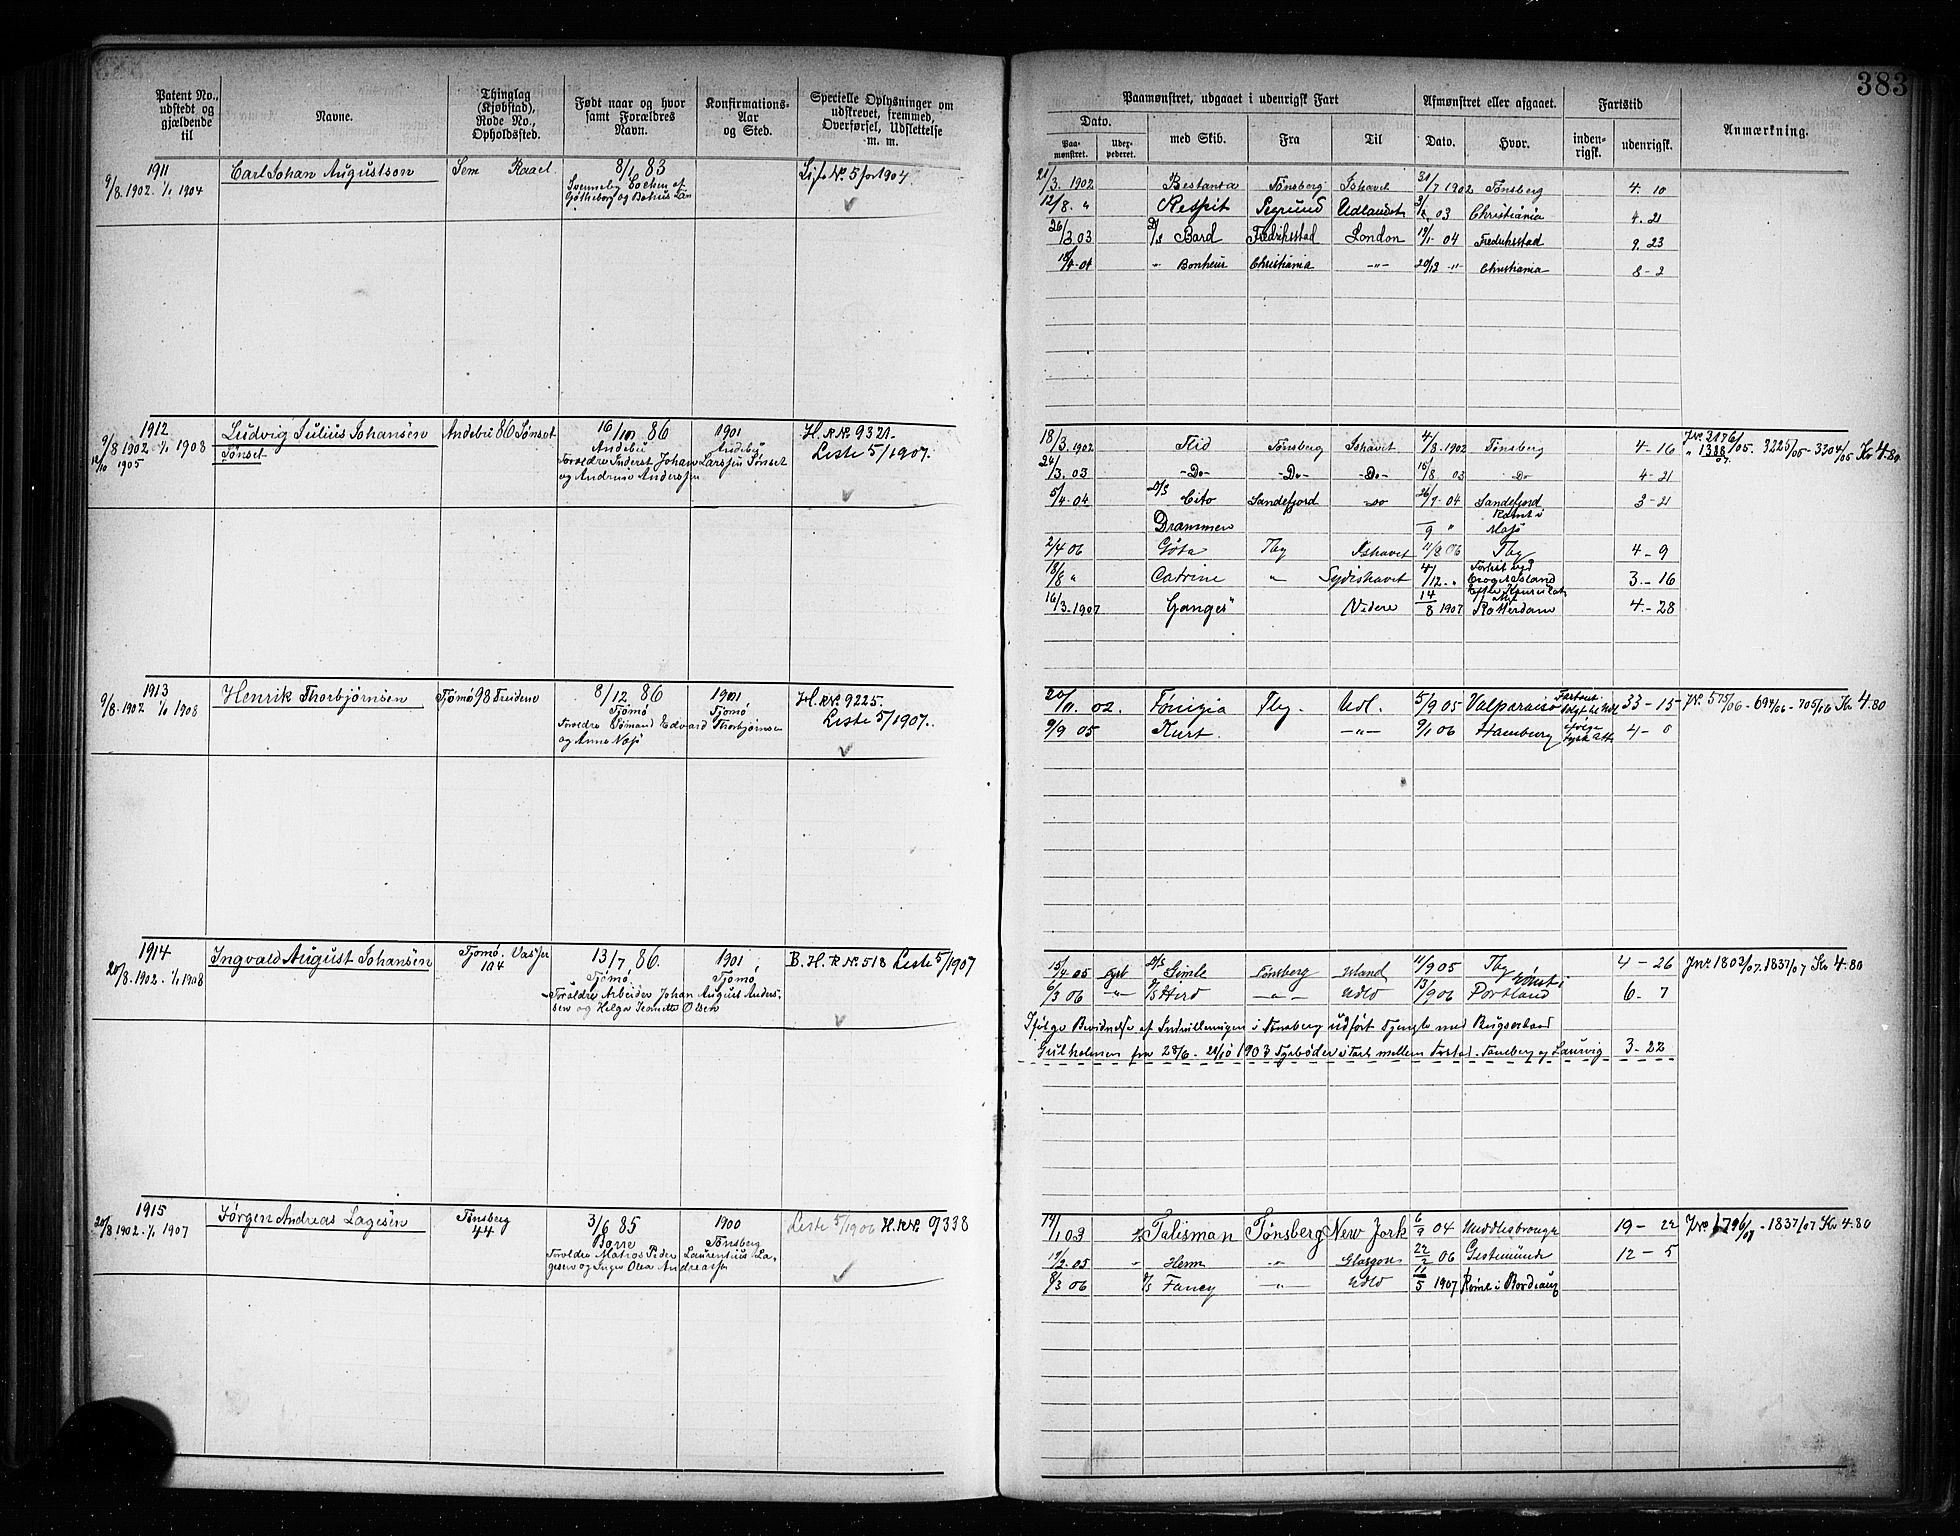 383
Patent No., udstedt og gjældende til
Navne.
Thinglag (Kjøbstad), Rode No., Opholdssted.
Født naar og hvor samt Forældres Navn.
Konfirmations-Aar og Sted.
Specielle Oplysninger om udstrevet, fremmed, Overførsel, Udslettelse m. m.
Paamønstret, udgaaet i udenrigsk Fart
Afmønstret eller afgaaet.
Fartstid
Anmærkning.
Dato.
med Skib.
Fra
Til
Dato.
Hvor.
inden-rigsk.
udenrigsk.
Paa-mønstret.
1911
9/8. 1902. 1/1 1904
Carl Johan Augustson
Sem
8/6 83
Svenneby Socken af
Gøtheborg og Bohus Län
No. 5 for 1904.
21/3. 1902 Bestanda Tønsberg Ishavet 31/7 1902 Tønsberg 4. 10
12/8. " Respit Udlandet 03 Christiania 4. 21
26/3 03 D/s Bard Fredriksstad London 19/1 04 Fredriksstad 9. 23
18/4. 04 " Bonheur Christiania -"- 20/12 -"- Christiania 8 - 2
1912
9/8 1902 1/1 1908
12/10 1905
Ludvig Julius Johansen
Sønset
Andebu 86 Sønset
16/10 86
Andebu
Forældre Inderst Johan Larssen Sønset
og Andrine Anderssen
1901
Andebu
H. R No. 9321.
Liste 5/1907.
18/3. 1902 Flid Tønsberg Ishavet 4/8 1902 Tønsberg 4 - 16
24/3. 03 -Do- -Do- -Do- 15/8 03 Do 4 - 21
5/4. 04 D/s Cito Sandefjord Do 26/9. 04 Sandefjord 3 - 21
Drammen
Rømt i
2/4 06 Göta Tbg Ishavet 11/8 06 Tbg 4 - 9
18/8 " Catrine " Sydishavet 4/12. " Forlist ved
3. - 16
16/3. 1907 Ganges" Videre 14/8 1907 Rotterdam 4. - 28
JNo. 2176/05. 3225/05 - 3304/05 Kr 4.80
" 1388/07.
1913
9/8. 1902 1/1 1908
Henrik Thorbjørnsen
Tjømø 98 Treidene
8/12 86
Tjømø
Forældre Sømand Edvard Thorbjørnsen
og Anna
1901
Tjømø
H. R No. 9225.
Liste 5/1907.
20/11. 02. Fönigia Tbg. Udl. 5/9 05 Valparaiso 33 - 15
9/9 05 Kurt. -"- 9/1 06 Hamburg 4 - 0
JNo. 575/06 - 694/06 - 705/06 Kr 4.80
1914
20/8. 1902. 1/1 1908
Ingvald August Johansen
Tjømø. Vasser
104
13/7 86.
Tjømø
Forældre Arbeider Johan August Anders-
sen og Helga Jennette Olsen
1901
Tjømø
B. H. R No. 518 Liste 5/1907
15/4. 05 D/s Gimle Tønsberg Utland 11/9 05 Tbg 4 - 26
6/3 06 -"- D/s Herö -"- Udld 13/9 06 Rømt i Portland 6. 7
Ifølge Bevidnelse af Indrulleringen i Tønsberg udført Tjeneste med Bugserbaad
Gulholmen fra 28/6 - 21/10 1903 Fyrbøder i Fart mellem Tønsberg og Laurvig 3 - 22
Jnr. 1802/07. 1837/07 Kr 4.80
1915
20/8. 1902. 1/1 1907
Jørgen Andreas Lagesen
Tønsberg
44
3/6 85
Borre
Forældre Matros Peder Laurentius La-
gesen og Inger Olea Andreassen
1900
Tønsberg
Liste 5/1906 H. R No. 9338
14/1 03 Talisman Tønsberg New York 6/9 04 Middlesbrough 19 - 22
19/2. 05 " Herm -"- Glasgow 22/2 06 Gestemünde 12 - 5
8/3 06 D/s Fancy -"- Udld 11/5 1907 Rømt i Bordeaux
JNo. 1796/07 - 1837/07 Kr 4.80